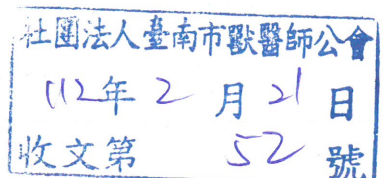 社團法人臺南市獸醫師公會
112年2月21日
收文第52號